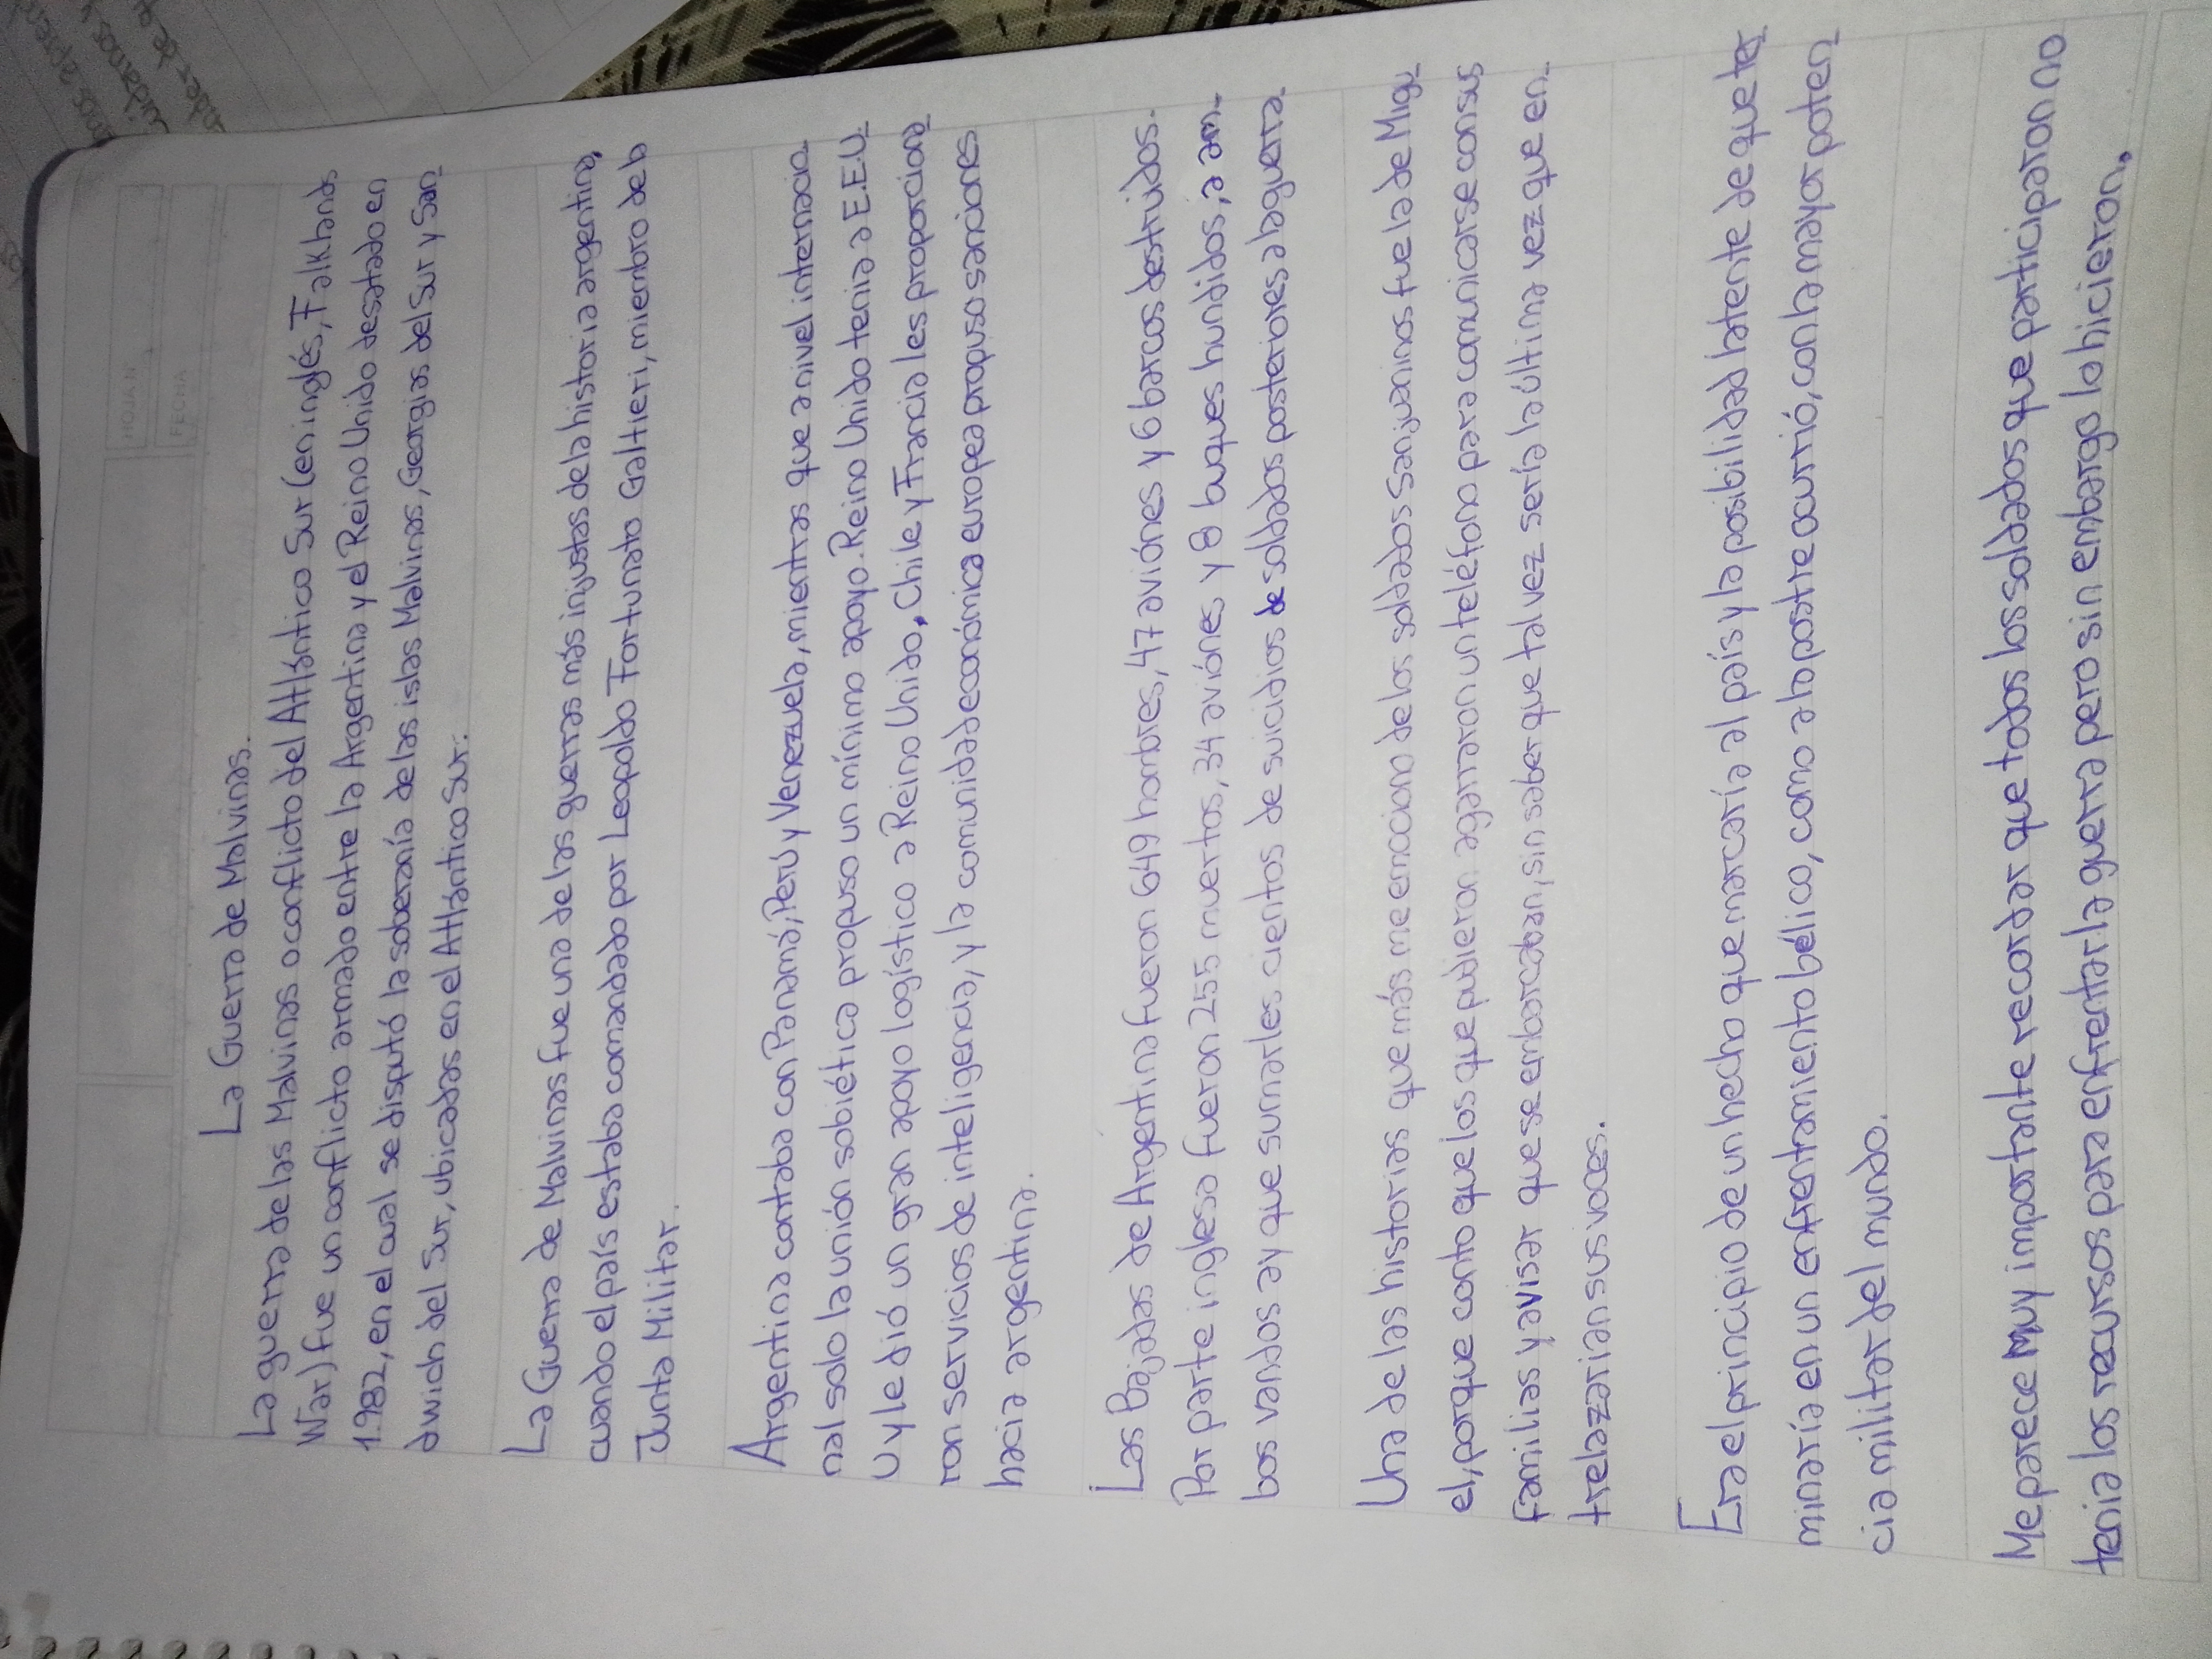 HOJA N°
FECHA
La Guerra de Malvinas.
La guerra de las Malvinas o conflicto del Atlántico Sur (en inglés, Falklands
War) fue un conflicto armado entre la Argentina y el Reino Unido desatado en
1.982, en el cual se disputó la soberanía de las islas Malvinas, Georgias del Sur y San
dwich del Sur, ubicadas en el Atlántico Sur.
La Guerra de Malvinas fue una de las guerras más injustas de la historia argentina,
cuando el país estaba comandado por Leopoldo Fortunato Galtieri, miembro de la
Junta Militar.
Argentina contaba con Panamá, Perú y Venezuela, mientras que a nivel internacio
nal solo la unión sobiética propuso un mínimo apoyo. Reino Unido tenia a E.E.U.
U y le dió un gran apoyo logístico a Reino Unido, Chile y Francia les proporciona
ron servicios de inteligencia, y la comunidad económica europea propuso sanciones
hacia argentina.
Las Bajadas de Argentina fueron 649 hombres, 47 aviónes y 6 barcos destruidos.
Por parte inglesa fueron 255 muertos, 34 aviónes y 8 buques hundidos, a am-
bos vandos ay que sumarles cientos de suicidios de soldados posteriores a la guerra
Una de las historias que más me emociono de los soldados Sanjuaninos fue la de Migu
el, porque conto que los que pudieron agarraron un teléfono para comunicarse con sus
familias y avisar que se embarcaban, sin saber que tal vez sería la última vez que en
trelazarian sus voces.
Era el principio de un hecho que marcaría al país y la posibilidad latente de que ter
minaría en un enfrentamiento bélico, como a la postre ocurrió, con la mayor poten
cia militar del mundo.
Me parece muy importante recordar que todos los soldados que participaron no
tenia los recursos para enfrentar la guerra pero sin embargo lo hicieron.